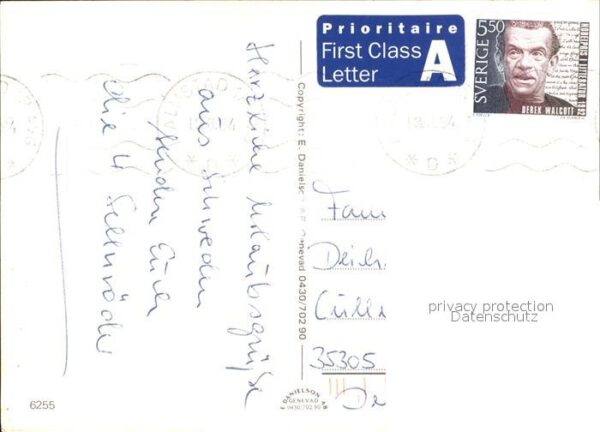 Prioritaire
First Class
Letter
A
5.50
SVERIGE
NOBELPRIS I LITTERATUR 1992
DEREK WALCOTT
Herzliche Urlaubsgrüße
aus Schweden
senden Euch
die 4
Copyright: E. Danielson AB Genevad 0430/702 90
Fam
Deich
Cülle
35305
De
privacy protection
Datenschutz
E DANIELSON AB
GENEVAD
0430/702 90
6255